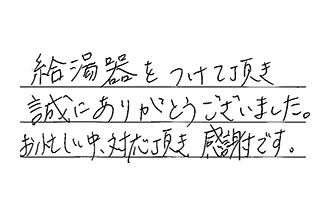 給湯器をつけて頂き
誠にありがとうございました。
お忙しい中、対応頂き感謝です。